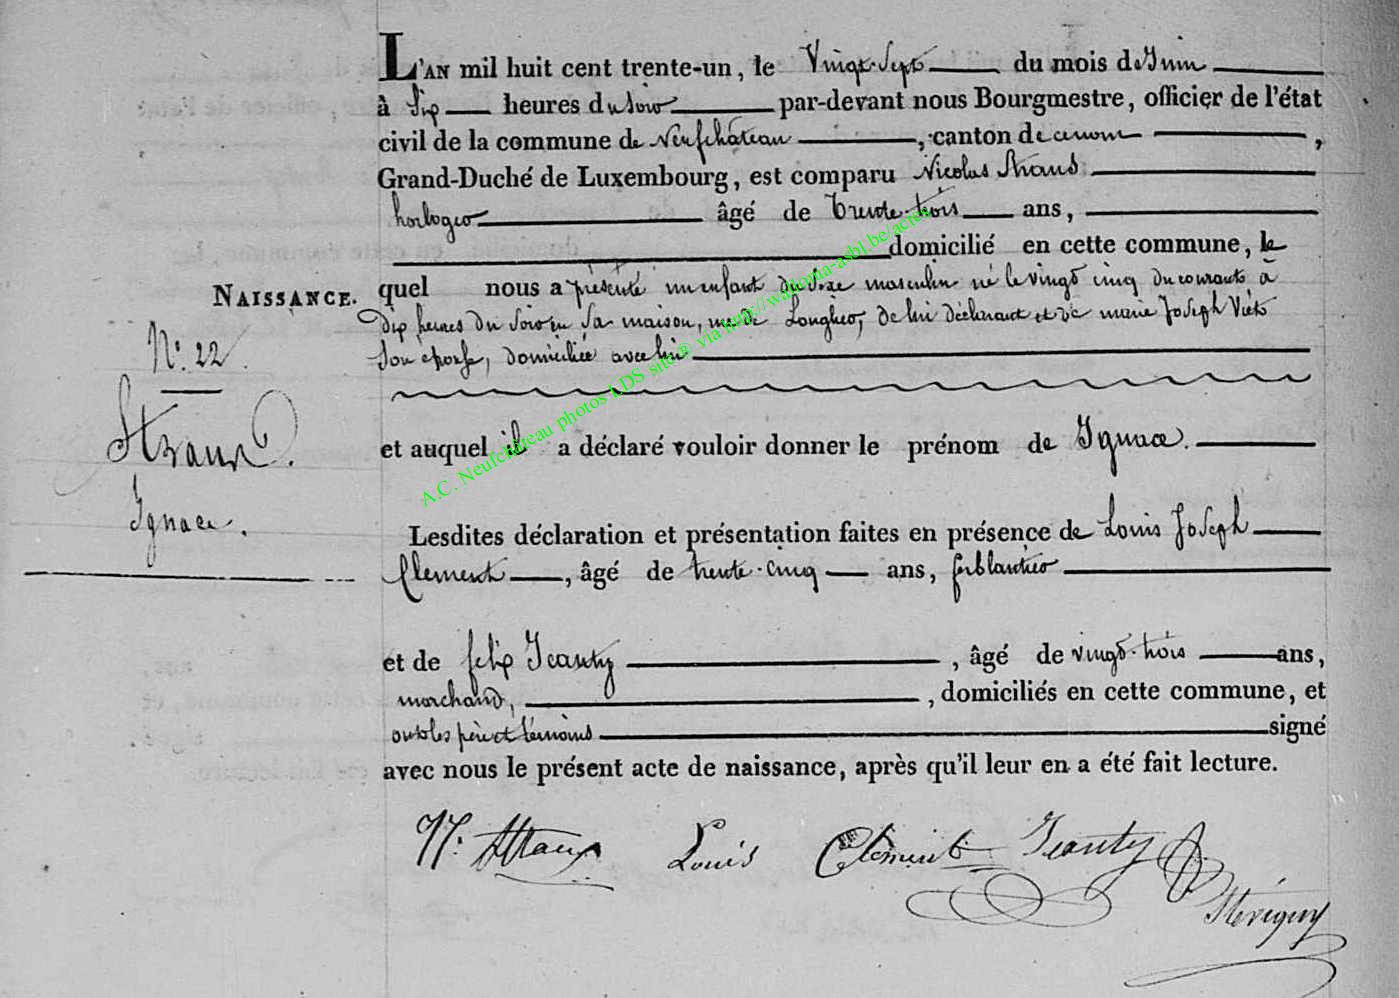 L'AN mil huit cent trente-un, le Vingt-Sept du mois de Juin
à Six heures du Soir par-devant nous Bourgmestre, officier de l'état
civil de la commune de Neufchâteau, canton de ce nom,
Grand-Duché de Luxembourg, est comparu Nicolas Straus
horloger âgé de trente-trois ans,
domicilié en cette commune, le
NAISSANCE. quel nous a présenté un enfant du Sexe masculin né le vingt cinq du courant à
dix heures du Soir en Sa maison, rue de Longlier, de lui déclarant et de marie Joseph
Son épouse, domiciliée avec lui
N.° 22
Straus.
Ignace.
et auquel il a déclaré vouloir donner le prénom de Ignace.
Lesdites déclaration et présentation faites en présence de Louis Joseph
Clement, âgé de trente-cinq ans, ferblantier
et de felix Jeanty, âgé de vingt-trois ans,
marchand, domiciliés en cette commune, et
ont les père et témoins signé
avec nous le présent acte de naissance, après qu'il leur en a été fait lecture.
N. Straus Louis Clément Jeanty
A.C. Neufchâteau photos LDS site® via http://wallonia-asbl.be/actes